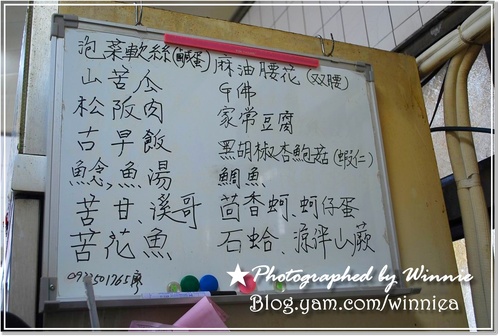 泡菜軟絲(鹹蛋)
山苦瓜
松阪肉
古早飯
鯰魚湯
苦甘、溪哥
苦花魚
麻油腰花(双腰)
家常豆腐
黑胡椒杏鮑菇(蝦仁)
鯛魚
茴香蚵、蚵仔蛋
石蛤、涼拌山蕨
Photographed by Winnie
Blog.yam.com/winniea